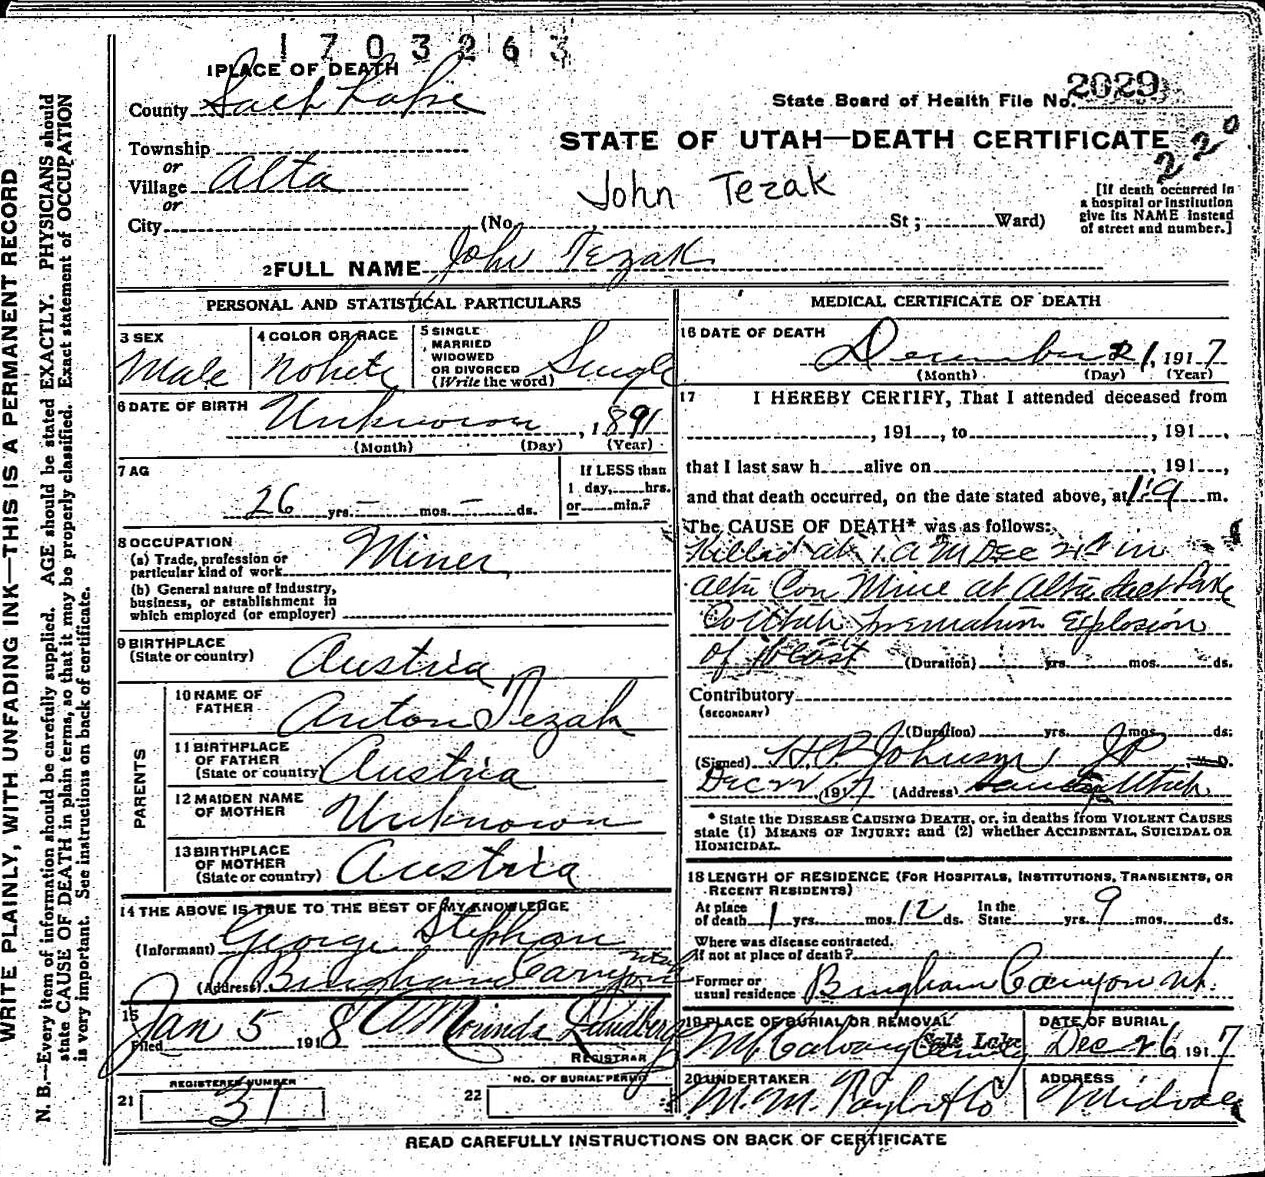 1703263
1 PLACE OF DEATH
County Salt Lake
State Board of Health File No. 2029
STATE OF UTAH—DEATH CERTIFICATE
220
Township
or
Village Alta
or
City (No. St; Ward)
John Tezak
[If death occurred in
a hospital or institution
give its NAME instead
of street and number.]
2 FULL NAME John Tezak
PERSONAL AND STATISTICAL PARTICULARS
3 SEX
Male
4 COLOR OR RACE
White
5 SINGLE
MARRIED
WIDOWED
OR DIVORCED
(Write the word)
Single
6 DATE OF BIRTH
Unknown, 1891
(Month) (Day) (Year)
7 AG
26 yrs. — mos. — ds.
If LESS than
1 day, hrs.
or min.?
8 OCCUPATION
(a) Trade, profession or
particular kind of work Miner
(b) General nature of Industry,
business, or establishment in
which employed (or employer)
9 BIRTHPLACE
(State or country) Austria
PARENTS
10 NAME OF
FATHER Anton Tezak
11 BIRTHPLACE
OF FATHER
(State or country) Austria
12 MAIDEN NAME
OF MOTHER Unknown
13 BIRTHPLACE
OF MOTHER
(State or country) Austria
14 THE ABOVE IS TRUE TO THE BEST OF MY KNOWLEDGE
(Informant) George Stephan
(Address) Bingham Canyon Utah
15
Filed Jan 5 1918
REGISTRAR
REGISTERED NUMBER
21 31
NO. OF BURIAL PERMIT
22
MEDICAL CERTIFICATE OF DEATH
16 DATE OF DEATH
December 21, 1917
(Month) (Day) (Year)
17 I HEREBY CERTIFY, That I attended deceased from
, 191 , to , 191 ,
that I last saw h alive on , 191 ,
and that death occurred, on the date stated above, at 1 a m.
The CAUSE OF DEATH* was as follows:
Killed at 1 A M Dec 21st in
Alta Con Mine at Alta Salt Lake
Co Utah Premature Explosion
of Blast (Duration) yrs. mos. ds.
Contributory
(SECONDARY)
(Duration) yrs. mos. ds.
(Signed) Johnson JP M.D.
Dec 22 1917 (Address) Sandy Utah
* State the DISEASE CAUSING DEATH, or, in deaths from VIOLENT CAUSES
state (1) MEANS OF INJURY; and (2) whether ACCIDENTAL, SUICIDAL OR
HOMICIDAL.
18 LENGTH OF RESIDENCE (FOR HOSPITALS, INSTITUTIONS, TRANSIENTS, OR
RECENT RESIDENTS)
At place In the
of death 1 yrs. mos. 12 ds. State yrs. 9 mos. ds.
Where was disease contracted.
if not at place of death?
Former or
usual residence Bingham Canyon Ut.
19 PLACE OF BURIAL OR REMOVAL
Mt Calvary Salt Lake
DATE OF BURIAL
Dec 26 1917
20 UNDERTAKER
M. M. Taylor & Co
ADDRESS
Midvale
READ CAREFULLY INSTRUCTIONS ON BACK OF CERTIFICATE
WRITE PLAINLY, WITH UNFADING INK—THIS IS A PERMANENT RECORD
N. B.—Every item of information should be carefully supplied. AGE should be stated EXACTLY. PHYSICIANS should
state CAUSE OF DEATH in plain terms, so that it may be properly classified. Exact statement of OCCUPATION
is very important. See instructions on back of certificate.